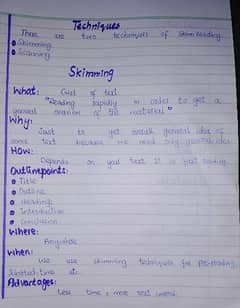 Techniques
There are two techniques of Reading
Skimming
Scanning
Skimming
What: Gist of text
"Reading rapidly in order to get a
general overview of the material"
Why:
Just to get overall general idea of
some text because we need only general idea
HOW:
Depends on your text It is fast reading
Outlinepoints:
Title
Outline
Headings
Introduction
Conclusion
Where:
Anywhere
When:
We use skimming technique for pre-reading,
limited-time etc.
Advantages:
Less time, more read